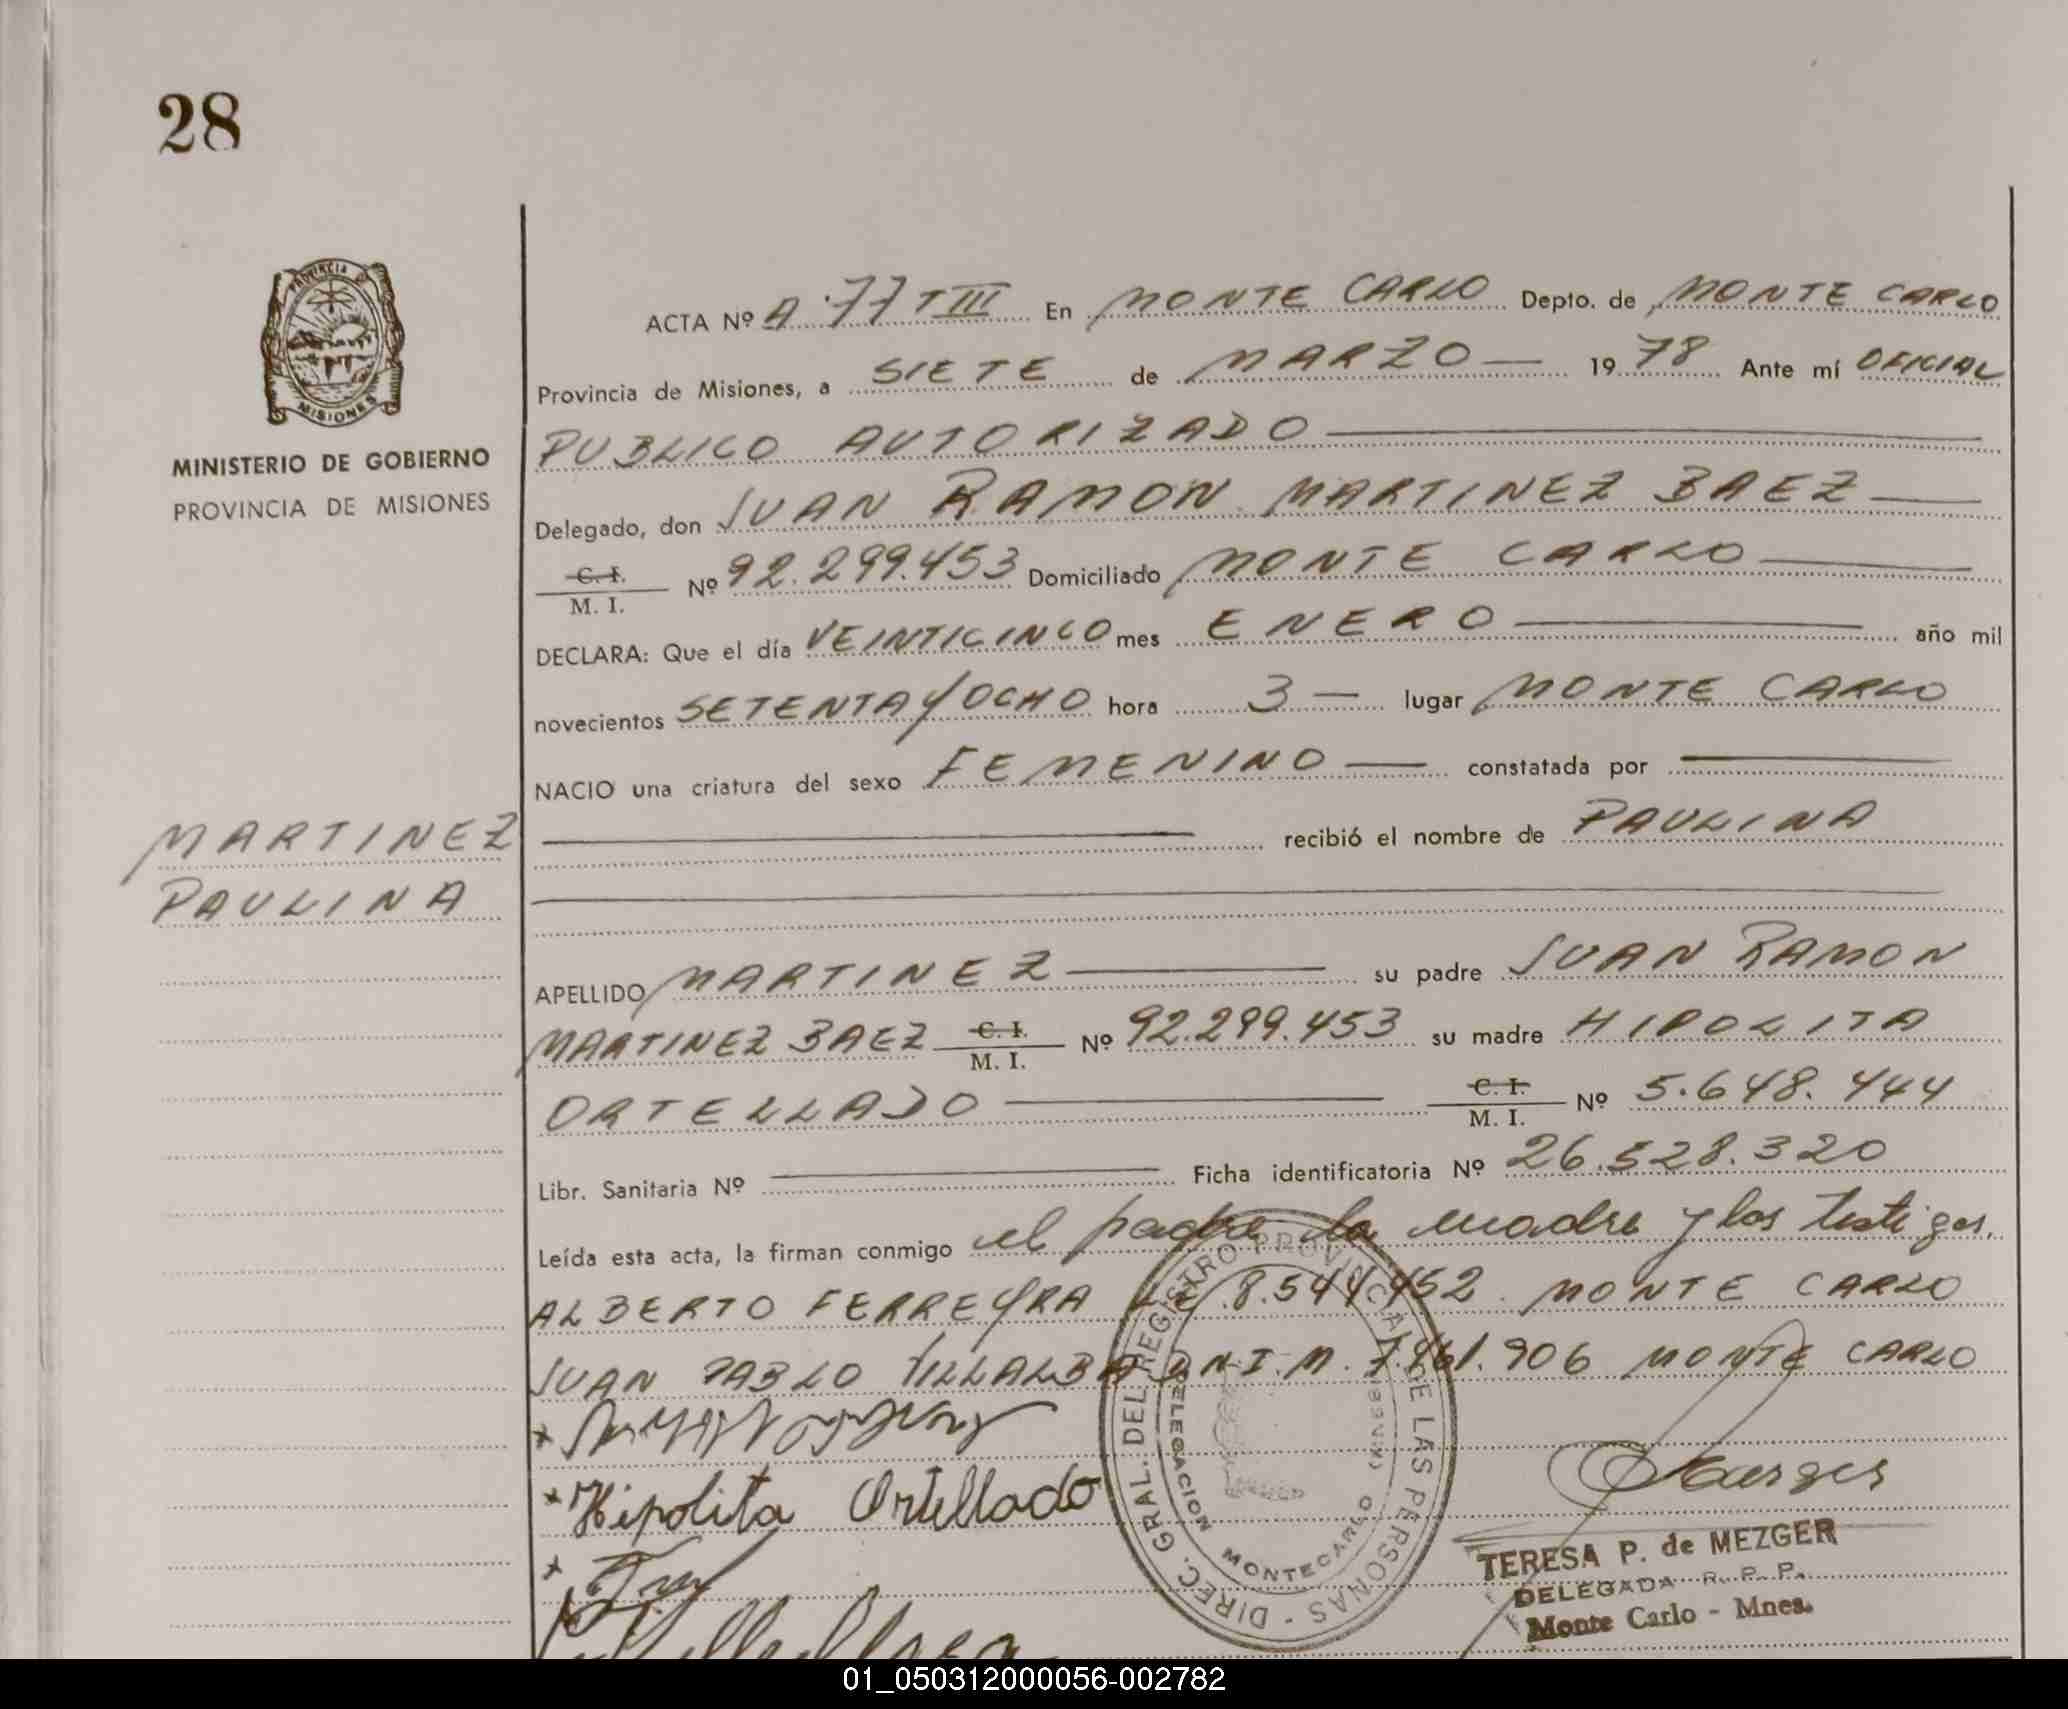 28
PROVINCIA DE
MISIONES
MINISTERIO DE GOBIERNO
PROVINCIA DE MISIONES
MARTINEZ
PAULINA
ACTA Nº A 77 T III En MONTE CARLO Depto. de MONTE CARLO
Provincia de Misiones, a SIETE de MARZO 19 78 Ante mí OFICIAL
PUBLICO AUTORIZADO
Delegado, don JUAN RAMON MARTINEZ BAEZ
C. I.
M. I. Nº 92.299.453 Domiciliado MONTE CARLO
DECLARA: Que el día VEINTICINCO mes ENERO año mil
novecientos SETENTA Y OCHO hora 3 — lugar MONTE CARLO
NACIO una criatura del sexo FEMENINO constatada por
recibió el nombre de PAULINA
APELLIDO MARTINEZ su padre JUAN RAMON
MARTINEZ BAEZ C. I. M. I. Nº 92.299.453 su madre HIPOLITA
ORTELLADO C. I. M. I. Nº 5.648.444
Libr. Sanitaria Nº Ficha identificatoria Nº 26.528.320
Leída esta acta, la firman conmigo el padre la madre y los testigos.
ALBERTO FERREYRA 8.544.452 MONTE CARLO
JUAN PABLO VILLALBA D.N.I.M. 7.461.906 MONTE CARLO
Hipolita Ortellado
DIREC. GRAL. DEL REGISTRO PROVINCIAL DE LAS PERSONAS
DELEGACION MONTECARLO (MNES)
TERESA P. de MEZGER
DELEGADA R. P. P.
Monte Carlo - Mnes.
01_050312000056-002782